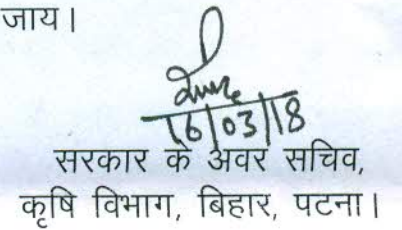 जाय।
16/03/18
सरकार के अवर सचिव,
कृषि विभाग, बिहार, पटना।